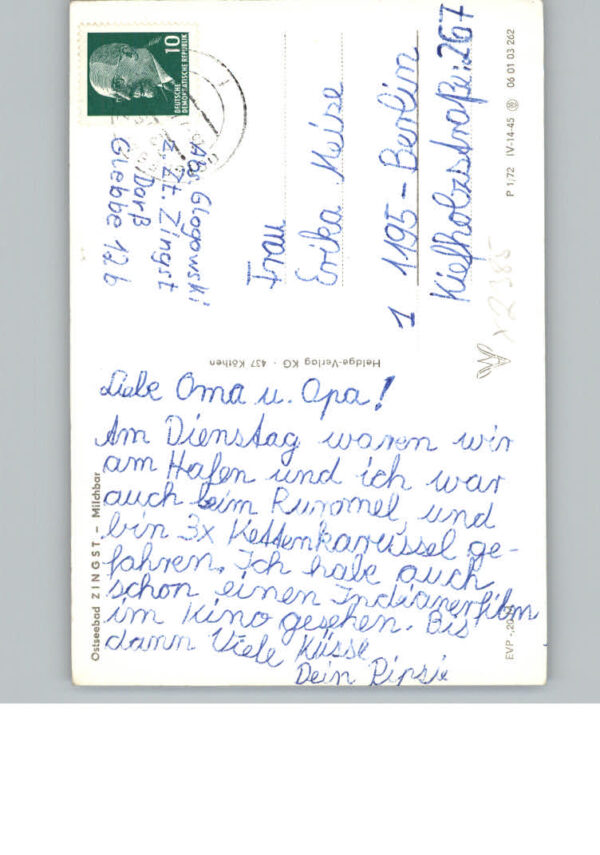 10
DEUTSCHE
DEMOKRATISCHE REPUBLIK
Abs. Glogowski
z. Zt. Zingst
Darß
Glebbe 12b
Frau
Erika Meise
1 1195 - Berlin
Kiefholzstraße: 267
P 1/72 IV-14-45 06 01 03 262
Heldge-Verlag KG · 437 Köthen
Ostseebad ZINGST – Milchbar
Liebe Oma u. Opa!
Am Dienstag waren wir
am Hafen und ich war
auch beim Rummel, und
bin 3x Kettenkarussel ge-
fahren. Ich habe auch
schon einen Indianerfilm
im Kino gesehen. Bis
dann Viele Küsse
Dein Pipsie
EVP -,20